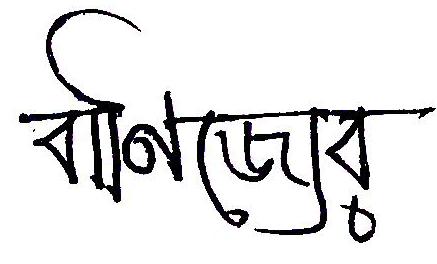 বাণিজ্যের